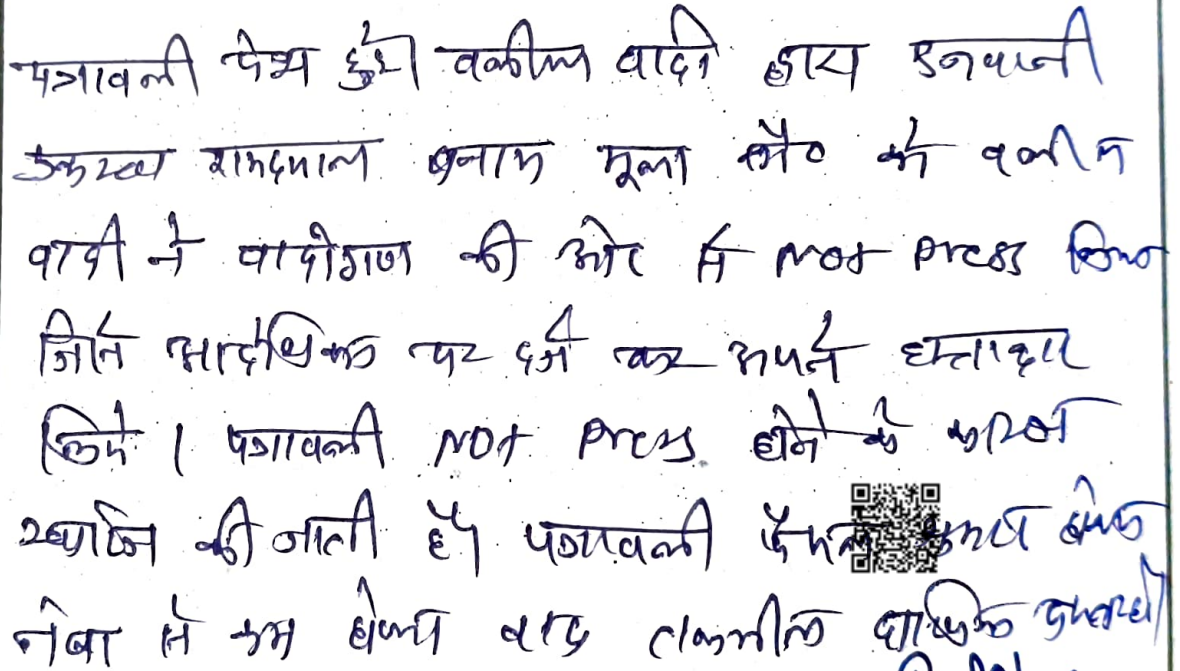 पत्रावली पेश हुई वकील वादी द्वारा
रामदयाल बनाम मूला के वकील
वादी ने वादीगण की ओर से Not Press किया
जिसे आदेशिका पर दर्ज कर अपने हस्ताक्षर
किये। पत्रावली Not Press होने के कारण
खारिज की जाती है। पत्रावली फैसल शुमार होकर
नंबर से कम होकर बाद तकमील दाखिल दफ्तर हो